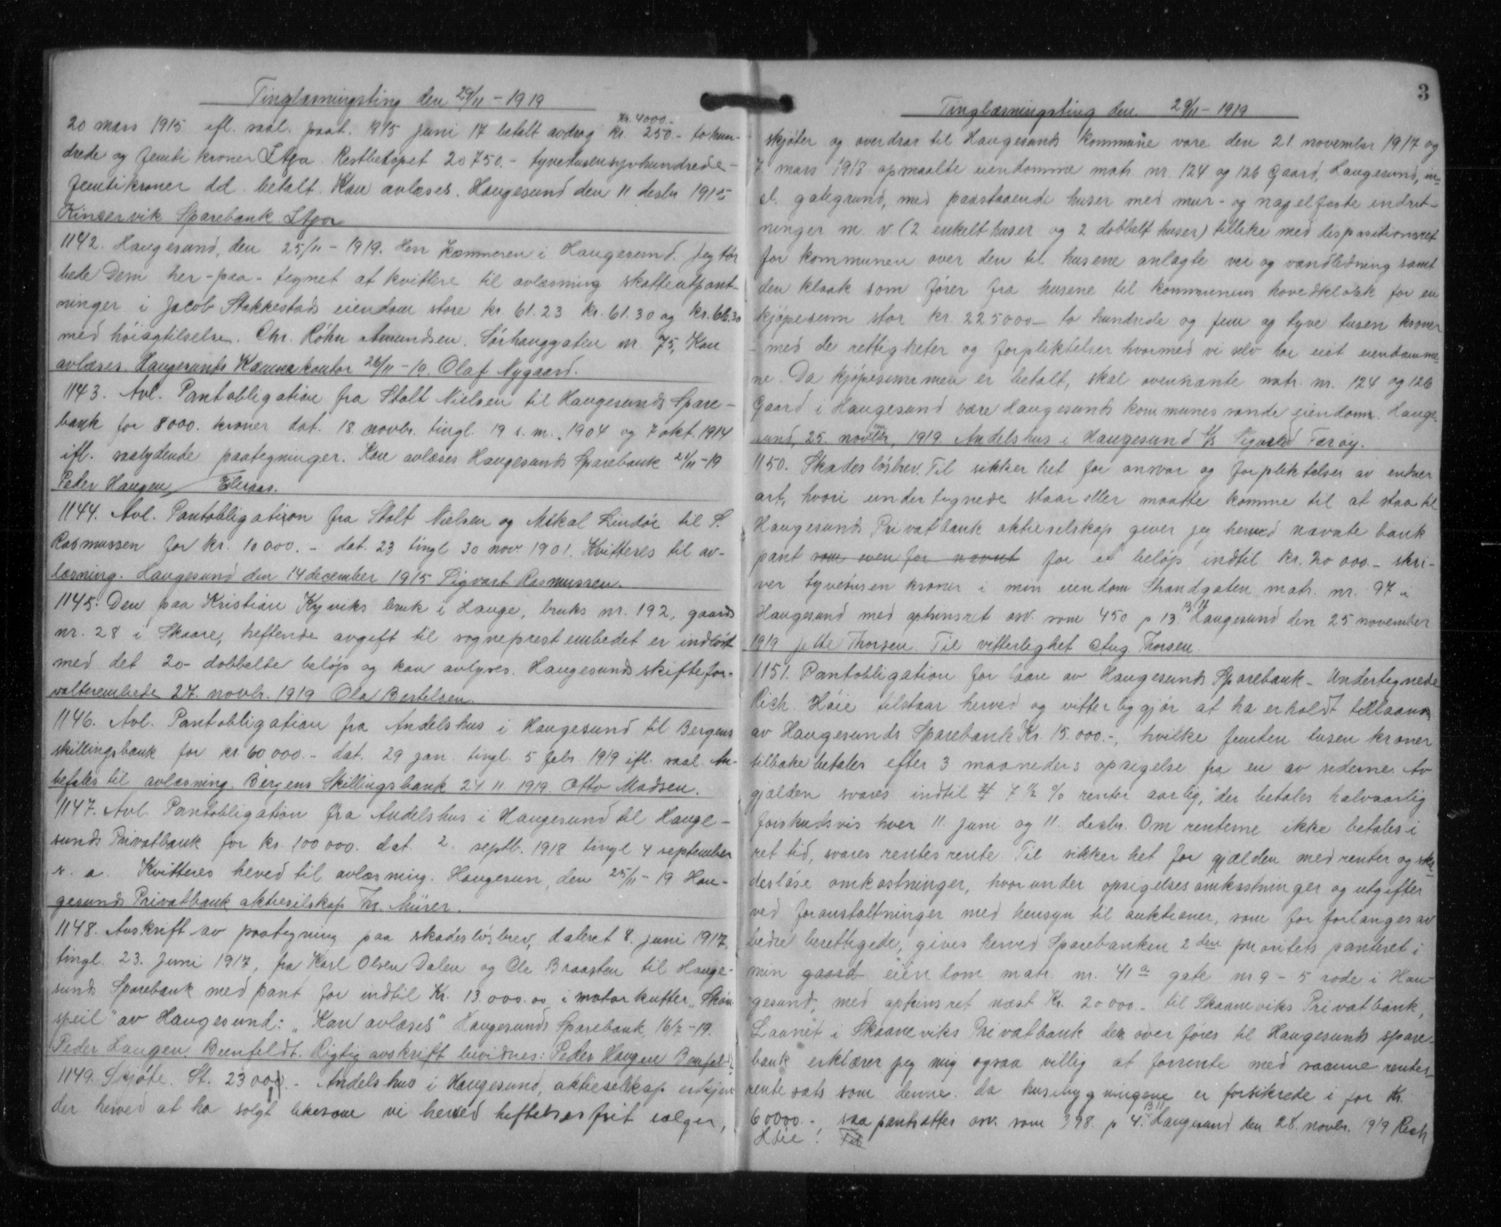 Tinglæsningsting den 29/11 - 1919
kr. 4000.-
20 mars 1915 ifl. vaal. paat. 1915 juni 17 betalt avdrag kr. 250 - tohun-
drede og femti kroner Litja. Restbeløpet 20750.- tyvetusensyvhundrede-
femti kroner d.d. betalt. Kan avlæses. Haugesund den 11 desbr 1915
Kinservik Sparebank
1142. Haugesund, den 25/11 - 1919. Herr Kæmneren i Haugesund. Jeg tør
bede Dem her-paa-tegnet at kvittere til avlæsning skatteutpant-
ninger i Jacob Stakkestads eiendom store kr. 61.23 kr. 61.30 og kr. 66.30
med høiagtelse. Chr. Røhn Amundsen. Sørhauggaten nr. 75, Kan
avlæses Haugesunds Kæmnerkontor 26/11 - 19. Olaf Nygaard.
1143. Avl. Pantobligation fra Stolt Nielsen til Haugesunds Spare-
bank for 8000. kroner dat. 18 novbr. tingl. 19 s.m. 1904 og 7 okt. 1914
ifl. vaalydende paategninger. Kan avlæses Haugesunds Sparebank 21/11 - 19
Peder Haugen
1144. Avl. Pantobligation fra Stolt Nielsen og Mikal Lindøe til S.
Rasmussen for kr. 10 000. - dat. 23 tingl 30 nov 1901. Kvitteres til av-
læsning. Haugesund den 14 december 1915 Sigvart Rasmussen.
1145. Den paa Kristian Kyviks bruk i Hauge, bruks nr. 192, gaards
nr. 28 i Skaare, heftende avgift til sogneprestembedet er indløst
med det 20- dobbelte beløp og kan avlyses. Haugesunds skiftefor-
valterembede 27. novbr. 1919 Ola Bertelsen
1146. Avl. Pantobligation fra Andelshus i Haugesund til Bergens
skillingsbank for kr 60 000. - dat. 29 jan. tingl. 5 febr 1919 ifl. vaal. An-
befales til avlæsning. Bergens Skillingsbank 24 11 1919. Otto Madsen.
1147. Avl. Pantobligation fra Andelshus i Haugesund til Hauge-
sunds Privatbank for kr. 100 000. dat. 2. septb. 1918 tingl 4 september
s. a. Kvitteres heved til avlæsning. Haugesun, den 25/11 - 19 Hau-
gesunds Privatbank aktieselskap Fr. Mürer.
1148. Avskrift av paategning paa skadesløsbrev, dateret 8. juni 1917,
tingl. 23. Juni 1917, fra Karl Olsen Dalen og Ole Braasten til Hauge-
sunds Sparebank med pant for indtil Kr. 13.000.00 i motorkutter "Skøn-
speil" av Haugesund: "Kan avlæses" Haugesunds Sparebank 16/7 - 19.
Peder Haugen Beenfeldt. Rigtig avskrift bevidnes: Peder Haugen Beenfeldt
1149. Skjøte. St. 2300. - Andelshus i Haugesund, aktieselskap erkjen-
der herved at ha solgt likesom vi herved heftelsesfrit sælger,
3
Tinglæsningsting den 29/11 - 1919
skjøter og overdrar til Haugesunds kommune vore den 21 november 1917 og
7 mars 1918 opmaalte eiendomme matr. nr. 124 og 126 Gaard, Haugesund, in-
cl. gategrund, med paastaaende huser med mur- og nagelfeste indret-
ninger m. v. (2 enkelthuser og 2 dobbelthuser) tillike med dispositionsret
for kommunen over den til husene anlagte vei og vandledning samt
den kloak som fører fra husene til kommunens hovedkloak for en
kjøpesum stor kr. 225000 - to hundrede og fem og tyve tusen kroner
- med de rettigheter og forpliktelser hvormed vi selv har eiet eiendomme-
ne. Da kjøpesummen er betalt, skal ovennævnte matr. nr. 124 og 126
Gaard i Haugesund være Haugesunds kommunes sande eiendom. Hauge-
sund, 25 november, 1919 Andelshus i Haugesund A/S Sigvald Færøy.
1150. Skadesløsbrev. Til sikkerhet for ansvar og forpliktelser av enhver
art, hvori undertegnede staar eller maatte komme til at staa til
Haugesunds Privatbank aktieselskap giver jeg herved nævnte bank
pant som oven for nævnt for et beløp indtil kr. 20 000.- skri-
ver tyvetusen kroner i min eiendom Strandgaten matr. nr. 97 i
Haugesund med optrinsret osv. som 450 p 13 B 17 Haugesund den 25 november
1919 Jette Thorsen. Til vitterlighet Aug Thorsen
1151. Pantobligation for laan av Haugesunds Sparebank - Undertegnede
Rich. Høie tilstaar herved og vitterliggjør at ha erholdt tillaans
av Haugesunds Sparebank Kr. 15.000.-, hvilke femten tusen kroner
tilbakebetales efter 3 maaneders opsigelse fra en av siderne. Av
gjælden svares indtil 7 ½ % renter aarlig, der betales halvaarlig
forskudsvis hver 11. juni og 11. decbr. Om renterne ikke betales i
ret tid, svares rentesrente. Til sikkerhet for gjælden med renter og ska-
desløse omkostninger, hvorunder opsigelsesomkostninger og utgifter
ved foranstaltninger med hensyn til auktioner, som for forlanges av
bedre berettigede, gives herved Sparebanken 2 den prioritets panteret i
min gaard eiendom matr. nr. 41a gate nr 9 - 5 rode i Hau-
gesund, med optrinsret næst Kr. 20 000.- til Skaaneviks Privatbank,
Laanet i Skaaneviks Privatbank der over føres til Haugesunds spare-
bank erklærer jeg mig ogsaa villig at forrente med samme rentes-
rentesats som denne. da husebygningene er forsikrede i for Kr.
60000.-, saa pantsættes osv. som 398 p 4. B 11 Haugesund den 28. novbr. 1919 Rich
Høie.